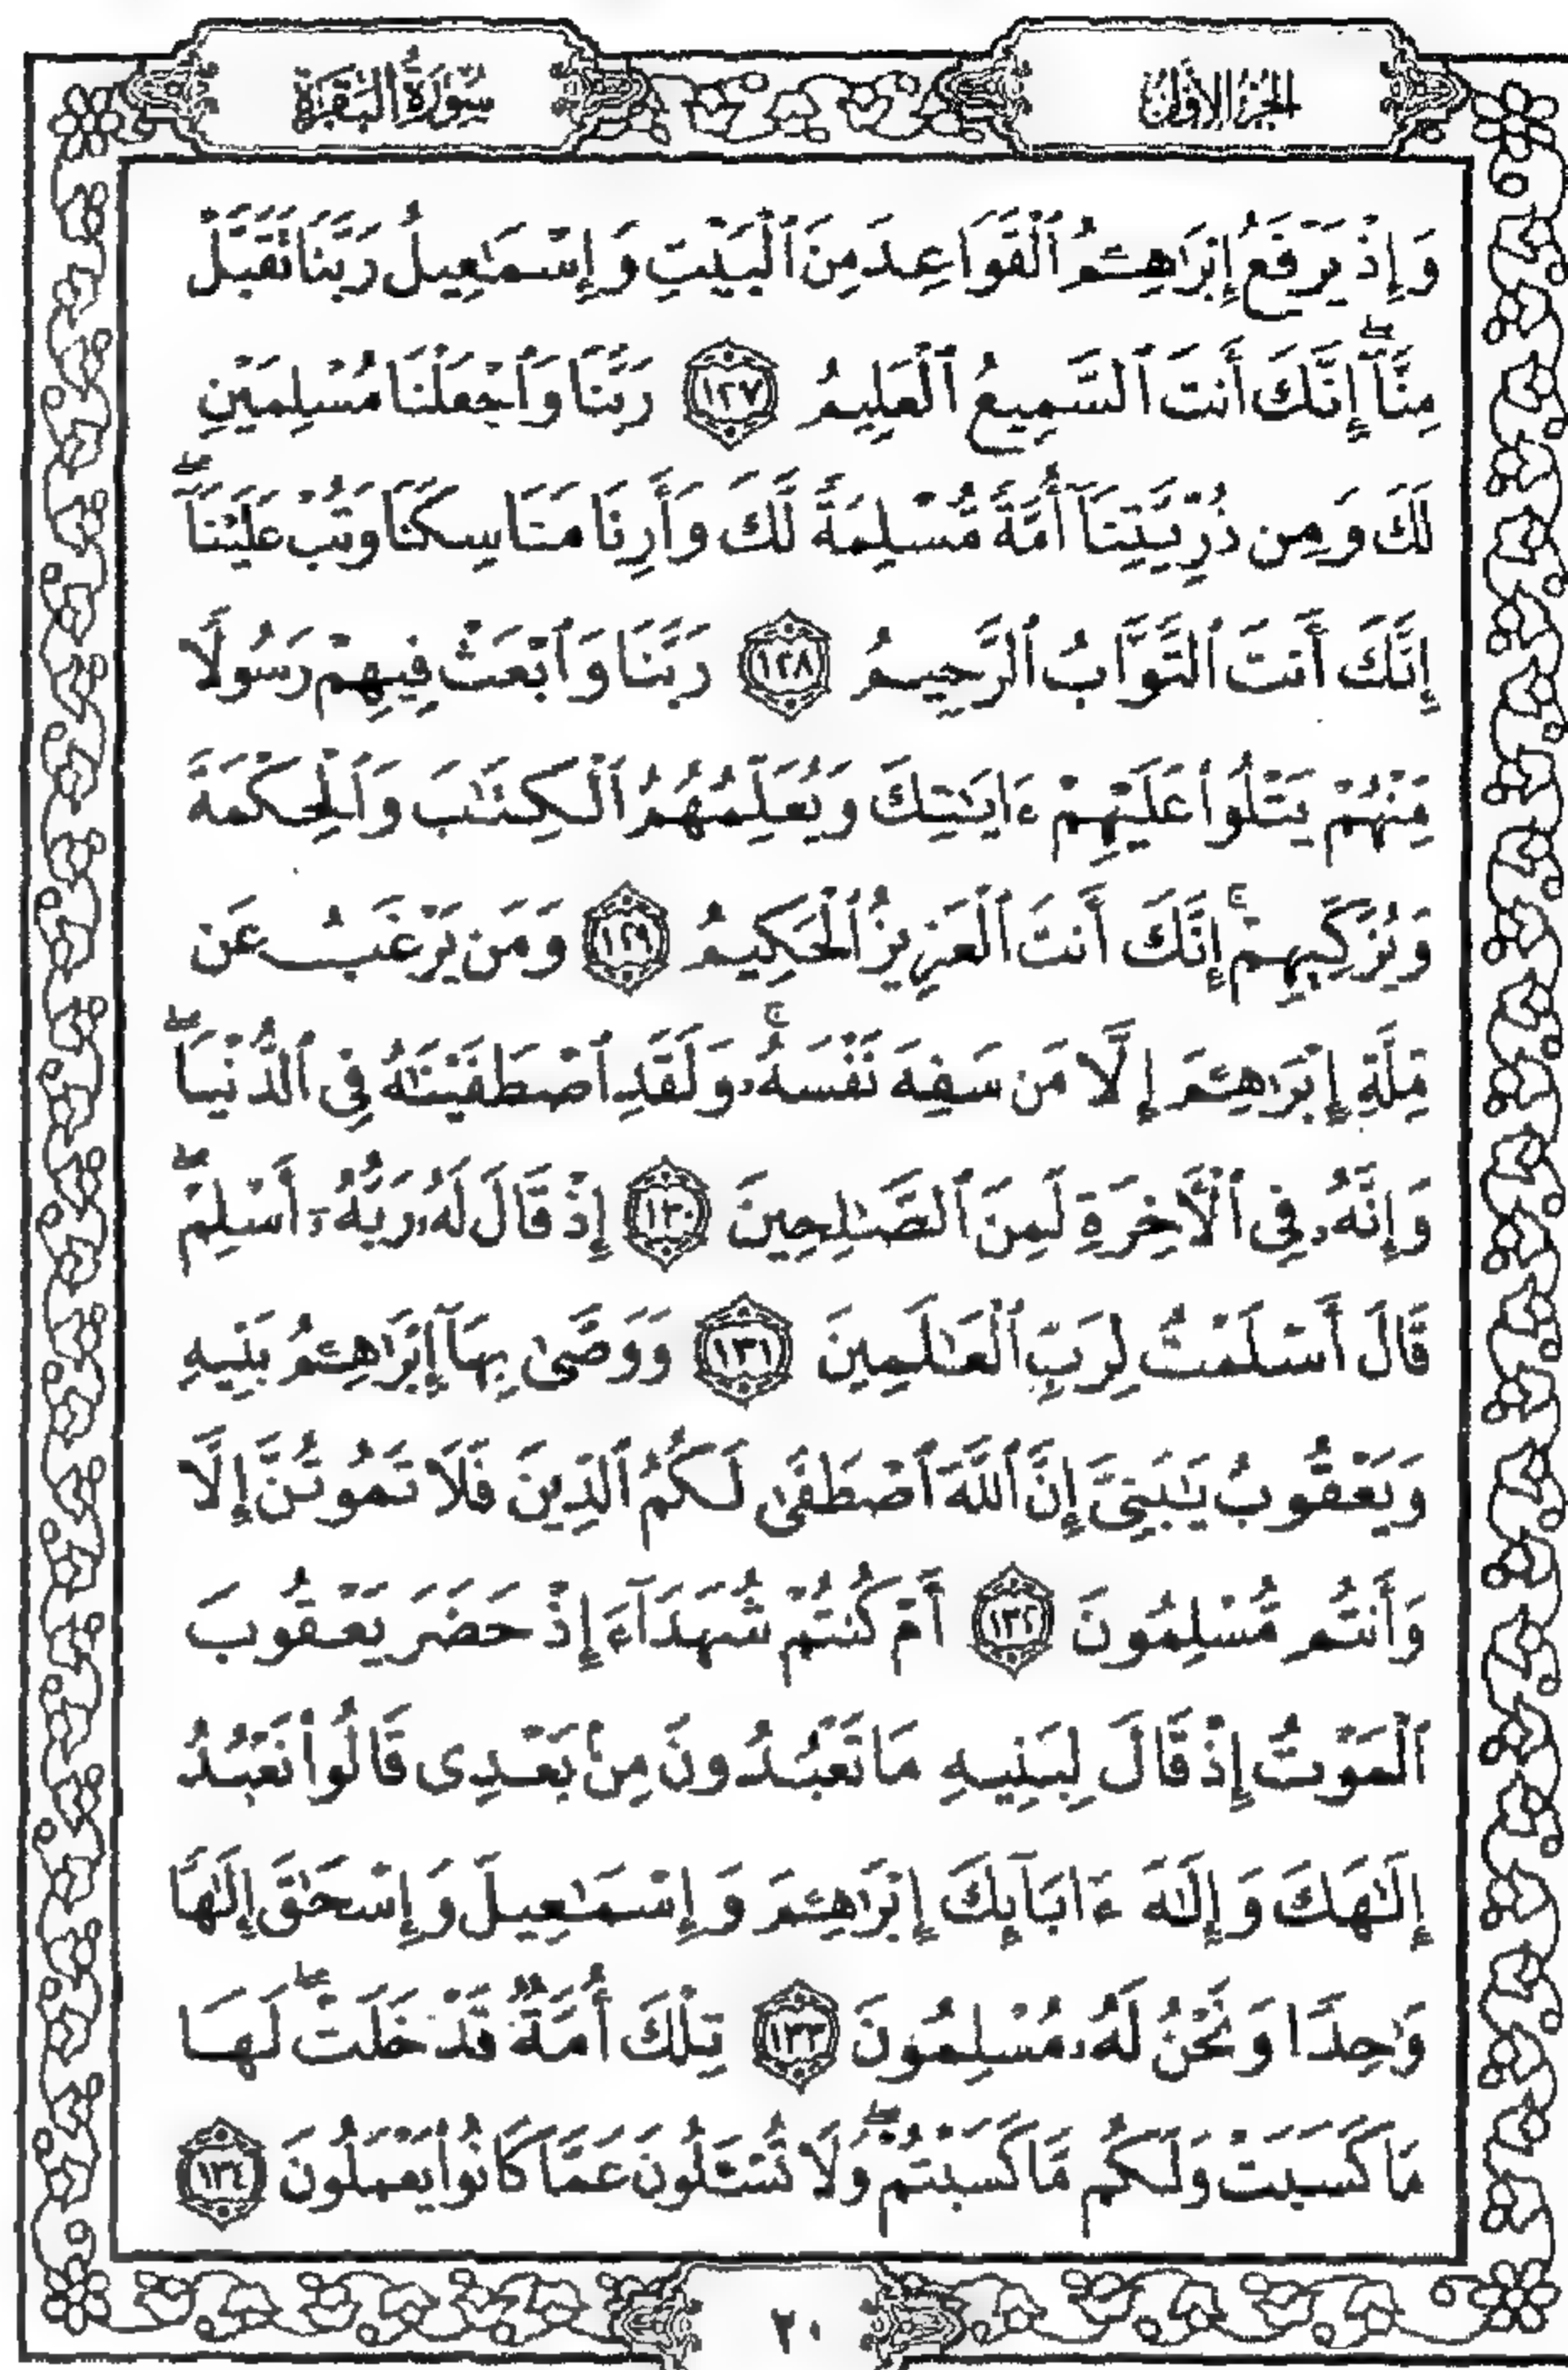 الجزء الأول
سورة البقرة
وَإِذْ يَرْفَعُ إِبْرَٰهِـۧمُ ٱلْقَوَاعِدَ مِنَ ٱلْبَيْتِ وَإِسْمَٰعِيلُ رَبَّنَا تَقَبَّلْ
مِنَّآ ۖ إِنَّكَ أَنتَ ٱلسَّمِيعُ ٱلْعَلِيمُ ١٢٧ رَبَّنَا وَٱجْعَلْنَا مُسْلِمَيْنِ
لَكَ وَمِن ذُرِّيَّتِنَآ أُمَّةً مُّسْلِمَةً لَّكَ وَأَرِنَا مَنَاسِكَنَا وَتُبْ عَلَيْنَآ ۖ
إِنَّكَ أَنتَ ٱلتَّوَّابُ ٱلرَّحِيمُ ١٢٨ رَبَّنَا وَٱبْعَثْ فِيهِمْ رَسُولًا
مِّنْهُمْ يَتْلُوا۟ عَلَيْهِمْ ءَايَٰتِكَ وَيُعَلِّمُهُمُ ٱلْكِتَٰبَ وَٱلْحِكْمَةَ
وَيُزَكِّيهِمْ ۚ إِنَّكَ أَنتَ ٱلْعَزِيزُ ٱلْحَكِيمُ ١٢٩ وَمَن يَرْغَبُ عَن
مِّلَّةِ إِبْرَٰهِـۧمَ إِلَّا مَن سَفِهَ نَفْسَهُۥ ۚ وَلَقَدِ ٱصْطَفَيْنَٰهُ فِى ٱلدُّنْيَا ۖ
وَإِنَّهُۥ فِى ٱلْأَخِرَةِ لَمِنَ ٱلصَّٰلِحِينَ ١٣٠ إِذْ قَالَ لَهُۥ رَبُّهُۥٓ أَسْلِمْ ۖ
قَالَ أَسْلَمْتُ لِرَبِّ ٱلْعَٰلَمِينَ ١٣١ وَوَصَّىٰ بِهَآ إِبْرَٰهِـۧمُ بَنِيهِ
وَيَعْقُوبُ يَٰبَنِىَّ إِنَّ ٱللَّهَ ٱصْطَفَىٰ لَكُمُ ٱلدِّينَ فَلَا تَمُوتُنَّ إِلَّا
وَأَنتُم مُّسْلِمُونَ ١٣٢ أَمْ كُنتُمْ شُهَدَآءَ إِذْ حَضَرَ يَعْقُوبَ
ٱلْمَوْتُ إِذْ قَالَ لِبَنِيهِ مَا تَعْبُدُونَ مِنۢ بَعْدِى قَالُوا۟ نَعْبُدُ
إِلَٰهَكَ وَإِلَٰهَ ءَابَآئِكَ إِبْرَٰهِـۧمَ وَإِسْمَٰعِيلَ وَإِسْحَٰقَ إِلَٰهًا
وَٰحِدًا وَنَحْنُ لَهُۥ مُسْلِمُونَ ١٣٣ تِلْكَ أُمَّةٌ قَدْ خَلَتْ ۖ لَهَا
مَا كَسَبَتْ وَلَكُم مَّا كَسَبْتُمْ ۖ وَلَا تُسْـَٔلُونَ عَمَّا كَانُوا۟ يَعْمَلُونَ ١٣٤
٢٠